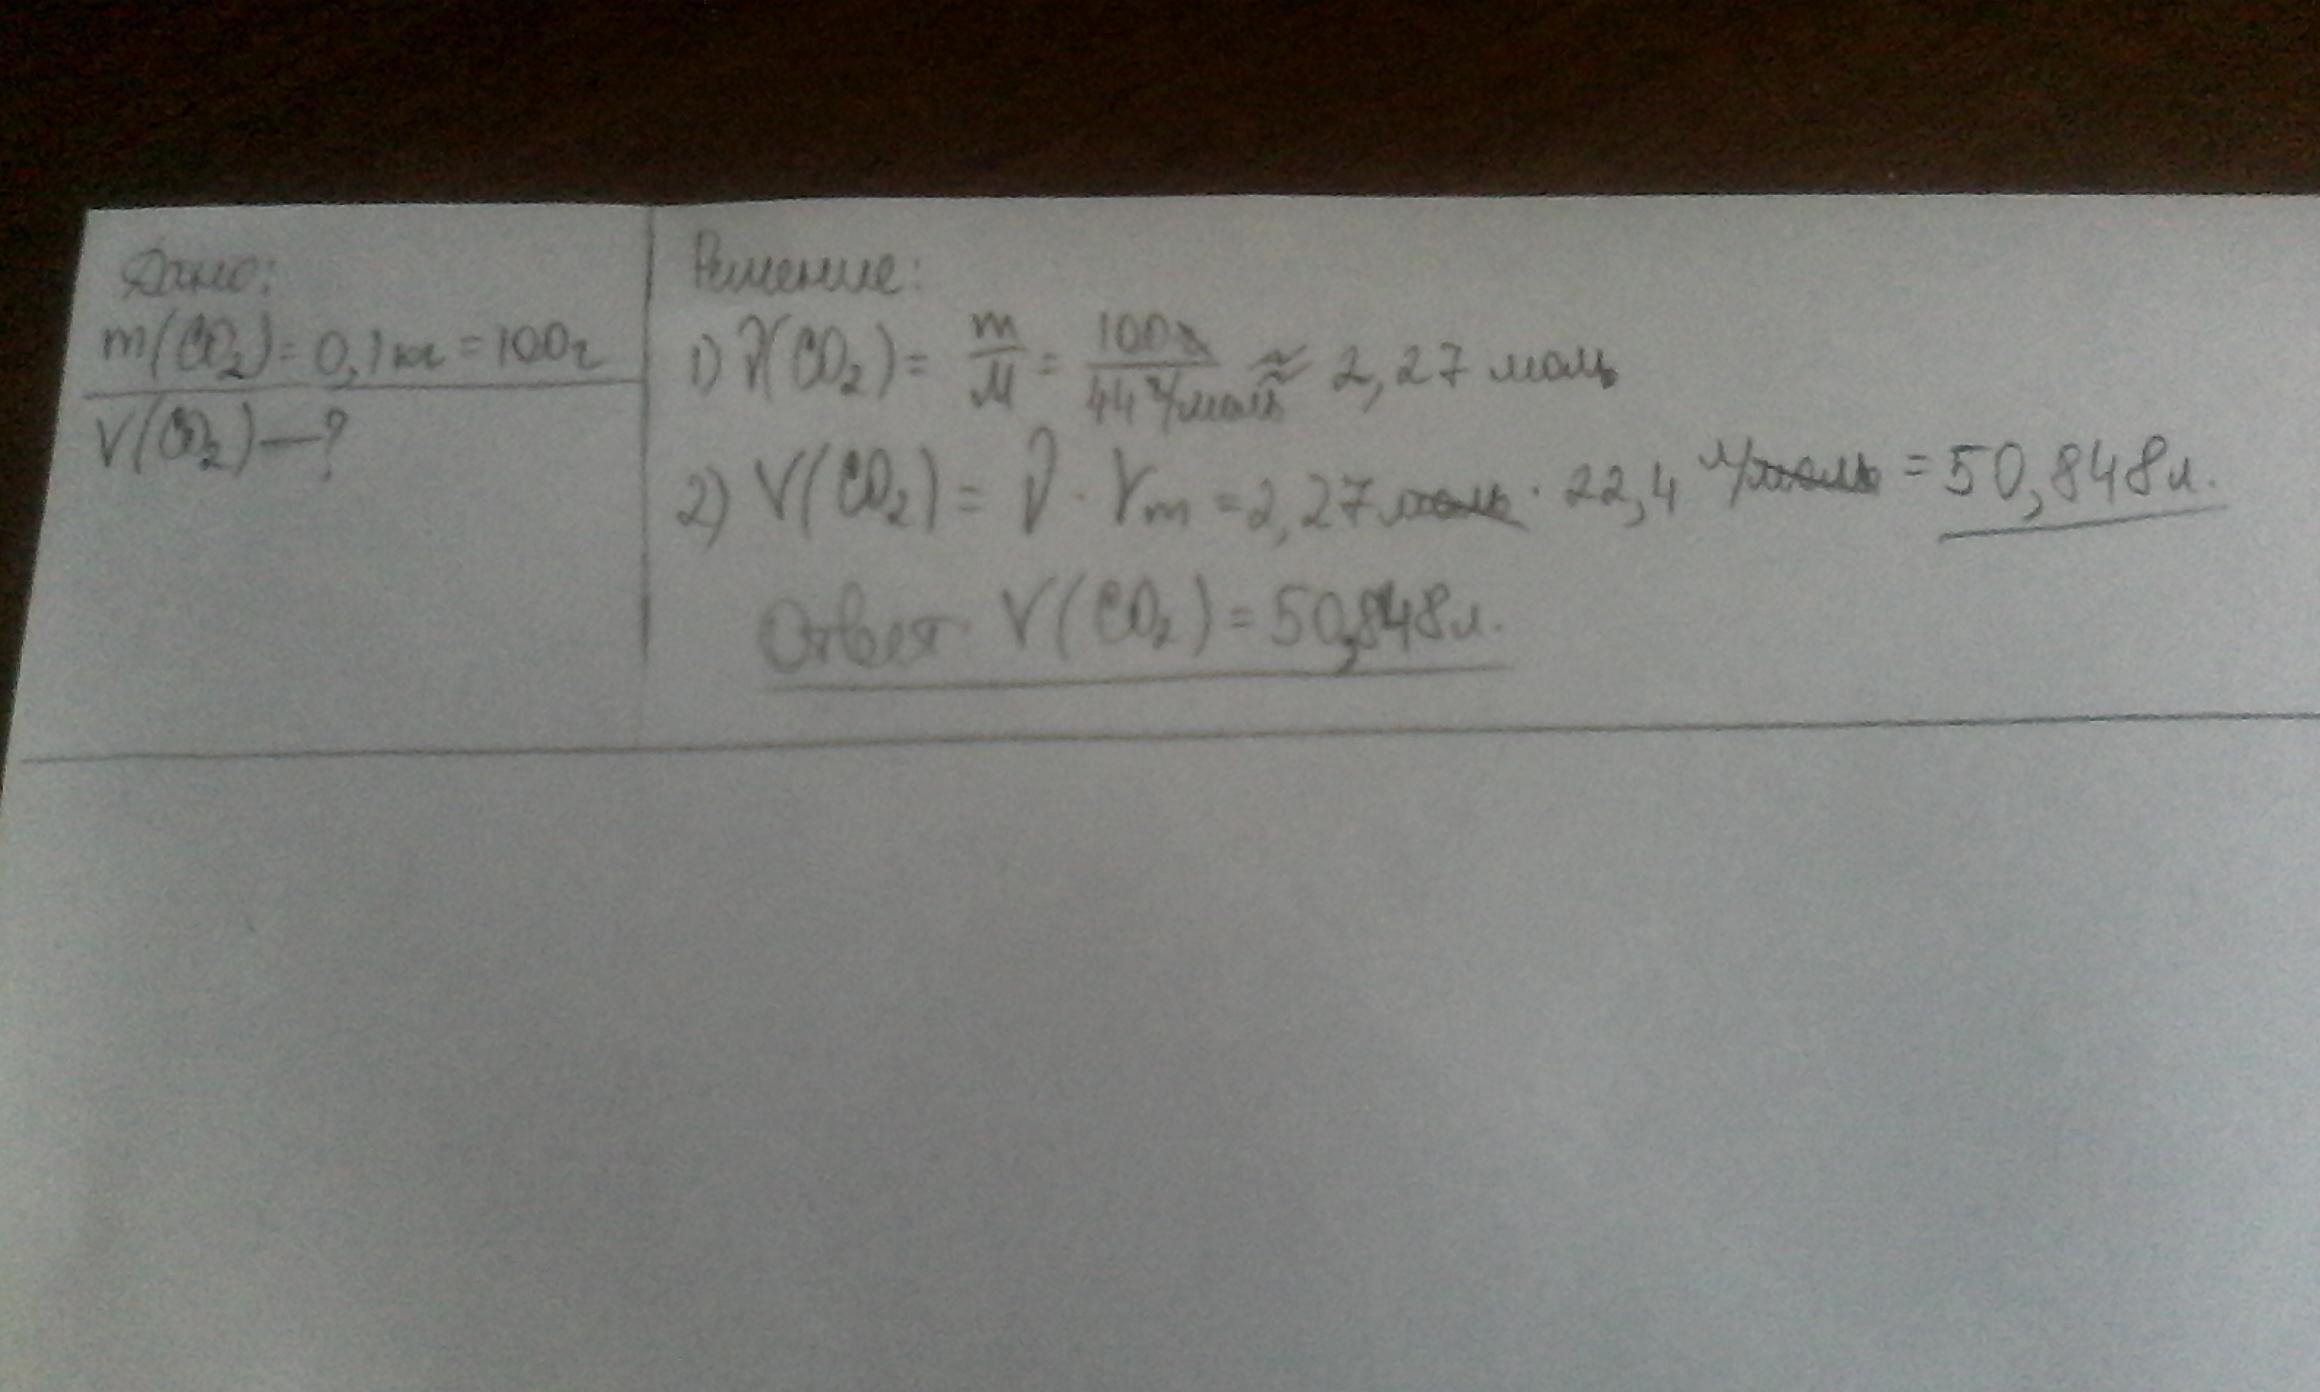 Дано:
m(CO₂)=0,1кг=100г
V(CO₂)—?
Решение:
1) ν(CO₂) = m/M = 100г/44г/моль ≈ 2,27 моль
2) V(CO₂) = ν · Vm = 2,27моль · 22,4 л/моль = 50,848л.
Ответ: V(CO₂) = 50,848л.